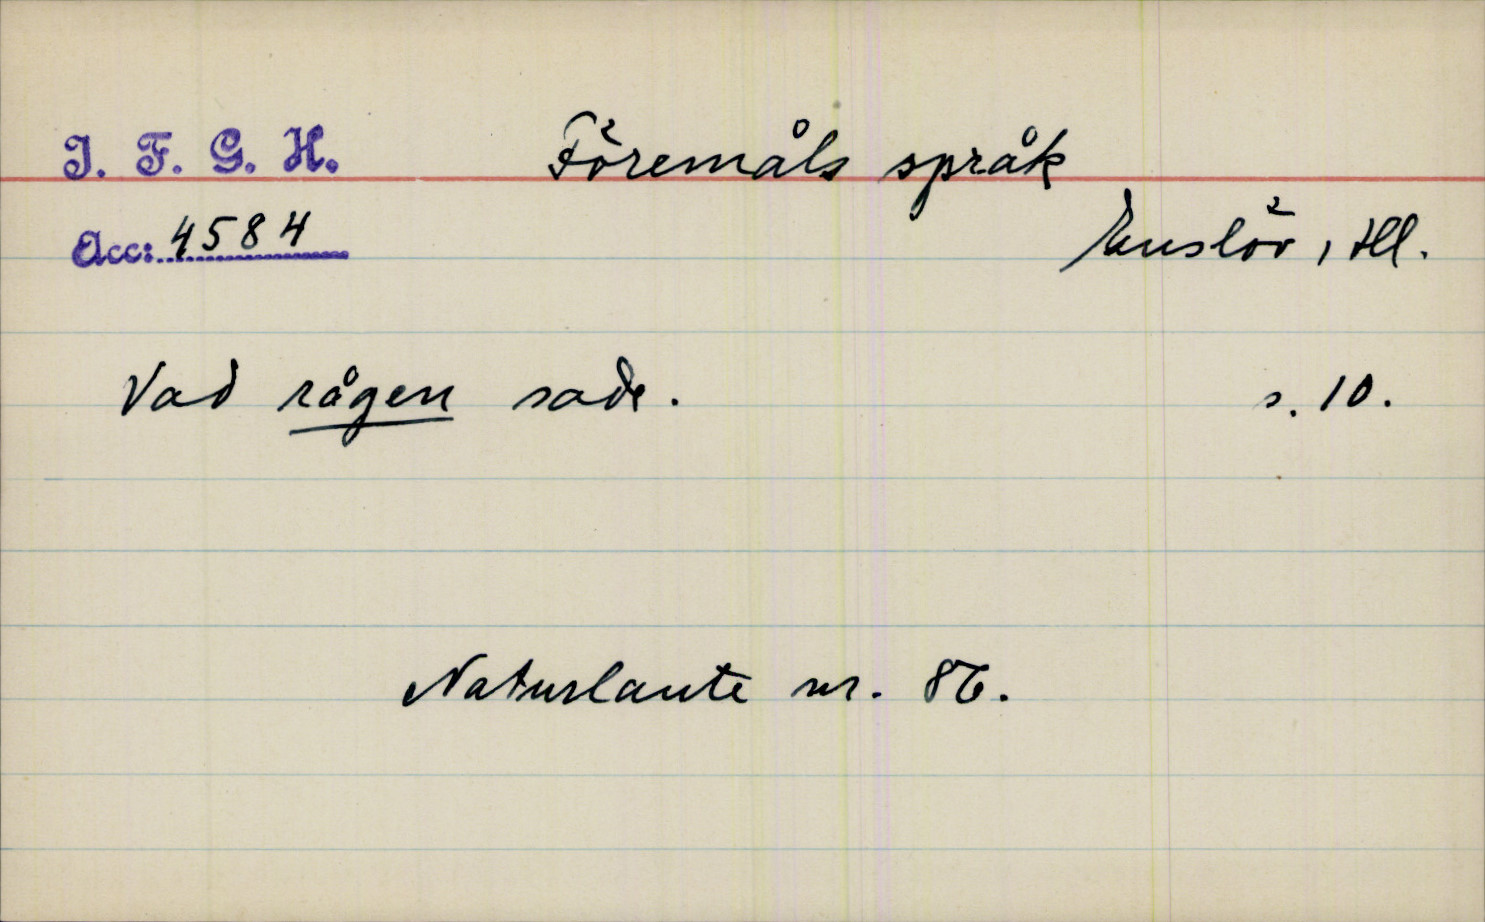 I. F. G. H.
Föremåls språk
Acc: 4584
Enslöv, Hl.
Vad rågen sade.
s. 10.
Naturlaute nr. 86.